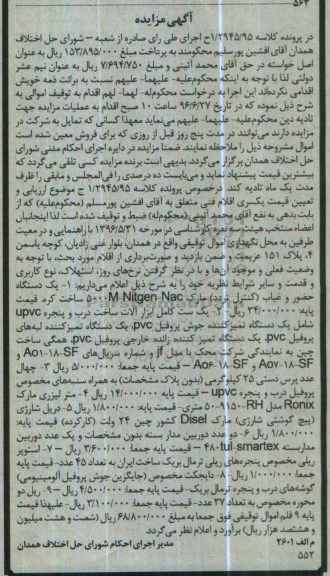 ۵۶۴
آگهی مزایده
در پرونده کلاسه ۱/۲۹۴۵/۹۵ح اجرای طی رای صادره از شعبه – شورای حل اختلاف
همدان آقای افشین پورسلیم محکومند به پرداخت مبلغ ۱۵۳/۸۹۵/۰۰۰ ریال به عنوان
اصل خواسته در حق آقای محمد آئینی و مبلغ ۷/۶۹۴/۷۵۰ ریال به عنوان نیم عشر
دولتی لذا با توجه به اینکه محکوم‌علیه- علیهما- علیهم نسبت به برائت ذمه خویش
اقدامی نکرده‌اند این اجرا به درخواست محکوم‌له- لهما- لهم اقدام به توقیف اموالی به
شرح ذیل نموده که در تاریخ ۹۶/۶/۲۷ ساعت ۱۰ صبح اقدام به عملیات مزایده جهت
تادیه دین محکوم‌علیه- علیهما- علیهم می‌نماید معهذا کسانی که تمایل به شرکت در
مزایده دارند می‌توانند در مدت پنج روز قبل از روزی که برای فروش معین شده است
اموال مشروحه ذیل را ملاحظه نمایند. ضمنا مزایده در دایره اجرای احکام مدنی شورای
حل اختلاف همدان برگزار می‌گردد. بدیهی است برنده مزایده کسی تلقی می‌گردد که
بیشترین قیمت پیشنهاد نماید و می‌بایست ده درصدی را فی‌المجلس و مابقی را ظرف
مدت یک ماه تادیه کند. درخصوص پرونده کلاسه ۱/۲۹۴۵/۹۵ ح موضوع ارزیابی و
تعیین قیمت یکسری اقلام فنی متعلق به آقای افشین پورمسلم (محکوم‌علیه) که از
بابت بدهی به نفع آقای محمد آئینی (محکوم‌له) ضبط و توقیف شده است لذا اینجانبان
اعضاء منتخب هیئت سه نفره کارشناسی در مورخه ۱۳۹۶/۵/۳۱ با راهنمایی و در معیت
طرفین به محل نگهداری اموال توقیفی واقع در همدان، بلوار غنی زادیان، کوچه یاسمن
۴، پلاک ۱۵۱ عزیمت و ضمن بازدید و صورت‌برداری از اقلام مورد بحث، با توجه به
وضعیت فعلی و موجود آن‌ها و با در نظر گرفتن نرخ‌های روز، استهلاک، نوع کاربری
و قدمت و سایر شرایط نظریه خود را به شرح ذیل اعلام می‌داریم: ۱- یک دستگاه
حضور و غیاب (کنترل تردد) مارک Nitgen Nac ۵۰۰۰M ساخت کره قیمت
پایه: ۳۴/۰۰۰/۰۰۰ ریال ۲- یک ست کامل ابزار آلات ساخت درب و پنجره upvc
شامل یک دستگاه تمیزکننده جوش پروفیل pvc، یک دستگاه تمیزکننده لبه‌های
پروفیل pvc، یک دستگاه تمیز کننده زانده خارجی پروفیل pvc، همگی ساخت
چین به نمایندگی شرکت محک با مدل jf و شماره سریال‌های A۰۱-۱۸-SF و
A۰۷-۱۸-SF و A۰۶-۱۸-SF – قیمت پایه جمعا: ۵/۰۰۰/۰۰۰ ریال ۳- چهال
عدد پرس دستی ۲۵ کیلوگرمی (بدون پلاک مشخصات) به همراه سنبه‌های مخصوص
پروفیل درب و پنجره upvc – قیمت پایه ۱۴/۰۰۰/۰۰۰ ریال ۴- متر لیزری مارک
Ronix مدل RH-۹۵۰۰ ۵۰ متری- قیمت پایه: ۱/۸۰۰/۰۰۰ ریال ۵- فریل شارژی
(پیچ گوشتی شارژی) مارک Disel کشور چین ۲۴ ولت (کارکرده) قیمت پایه:
۱/۸۰۰/۰۰۰ ریال ۶- دو عدد دوربین مدار بسته بدون مشخصات و یک عدد دوربین
مداربسته tul-smartex ۴۸۰ – قیمت پایه جمعا: ۳/۶۰۰/۰۰۰ ریال – ۷- استوپر
ریلی مخصوص پنجره‌های ریلی ترمال بریک ساخت ایران به تعداد ۴۵ عدد- قیمت پایه
جمعا: ۱/۰۰۰/۰۰۰ ریال -۸- دایجکت مخصوص (جایگزین جوش پروفیل آلومینیومی)
گوشه‌های درب و پنجره ترمال بریک- قیمت پایه جمعا: ۴/۵۰۰/۰۰۰ ریال – ۹- ریل دو
محوره مخصوص به تعداد ۳۷ عدد- قیمت پایه جمعا: ۳/۱۰۰/۰۰۰ ریال- علیهذا قیمت
پایه ۹ قلم اموال توقیفی فوق جمعا به مبلغ ۶۸/۸۰۰/۰۰۰ ریال (شصت و هشت میلیون
و هشتصد هزار ریال) برآورد و اعلام نظر می‌گردد.
م الف ۲۶۰۱ مدیر اجرای احکام شورای حل اختلاف همدان
۵۵۲